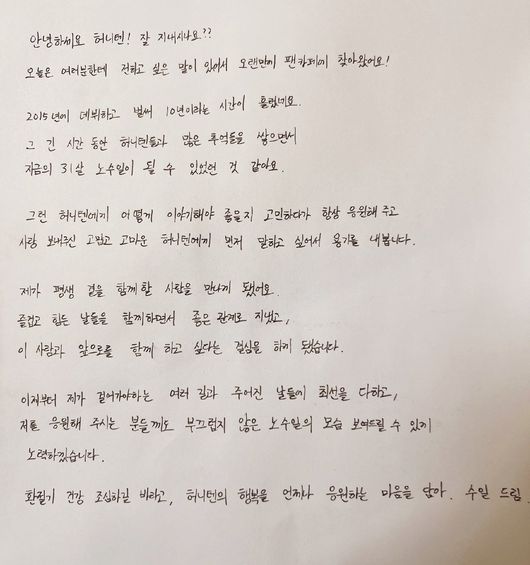 안녕하세요 허니텐! 잘 지내시나요??
오늘은 여러분한테 전하고 싶은 말이 있어서 오랜만에 팬카페에 찾아왔어요!
2015년에 데뷔하고 벌써 10년이라는 시간이 흘렀네요.
그 긴 시간 동안 허니텐들과 많은 추억들을 쌓으면서
지금의 31살 노수일이 될 수 있었던 것 같아요.
그런 허니텐에게 어떻게 이야기해야 좋을지 고민하다가 항상 응원해 주고
사랑 보내주신 고맙고 고마운 허니텐에게 먼저 말하고 싶어서 용기를 내봅니다.
제가 평생 곁을 함께할 사람을 만나게 됐어요.
즐겁고 힘든 날들을 함께하면서 좋은 관계로 지냈고,
이 사람과 앞으로를 함께 하고 싶다는 결심을 하게 됐습니다.
이제부터 제가 걸어가야하는 여러 길과 주어진 날들에 최선을 다하고,
저를 응원해 주시는 분들께도 부끄럽지 않은 노수일의 모습 보여드릴 수 있게
노력하겠습니다.
환절기 건강 조심하길 바라고, 허니텐의 행복을 언제나 응원하는 마음을 담아. 수일 드림.